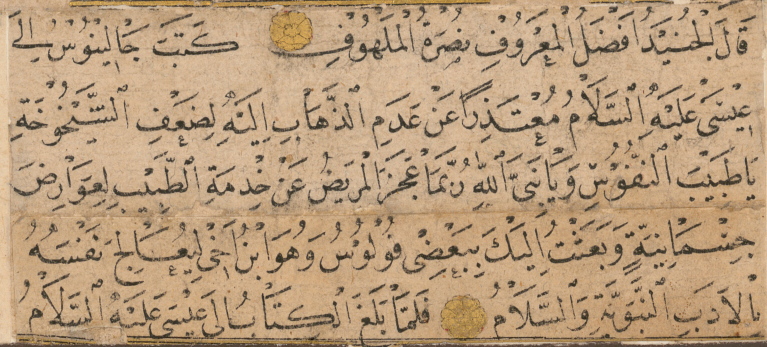 قَالَ الْجُنَيْدُ اَفْضَلُ الْمَعْرُوفِ نُصْرَةُ الْمَلْهُوفِ كَتَبَ جَالِينُوسُ اِلَى
عِيسَى عَلَيْهِ السَّلَامُ مُعْتَذِرًا عَنْ عَدَمِ الذَّهَابِ اِلَيْهِ لِضَعْفِ الشَّيْخُوخَةِ
يَا طَبِيبَ النُّفُوسِ وَيَا نَبِيَّ اللّٰهِ رُبَّمَا عَجَزَ الْمَرِيضُ عَنْ خِدْمَةِ الطَّبِيبِ لِعَوَارِضَ
جِسْمَانِيَّةٍ وَبَعَثْتُ اِلَيْكَ بِبَعْضِى فُولُوسُ وَهُوَ ابْنُ اَخِى لِيُعَالِجَ نَفْسَهُ
بِالْاَدَبِ النَّبَوِيَّةِ وَالسَّلَامُ فَلَمَّا بَلَغَ الْكِتَابُ اِلَى عِيسَى عَلَيْهِ السَّلَامُ